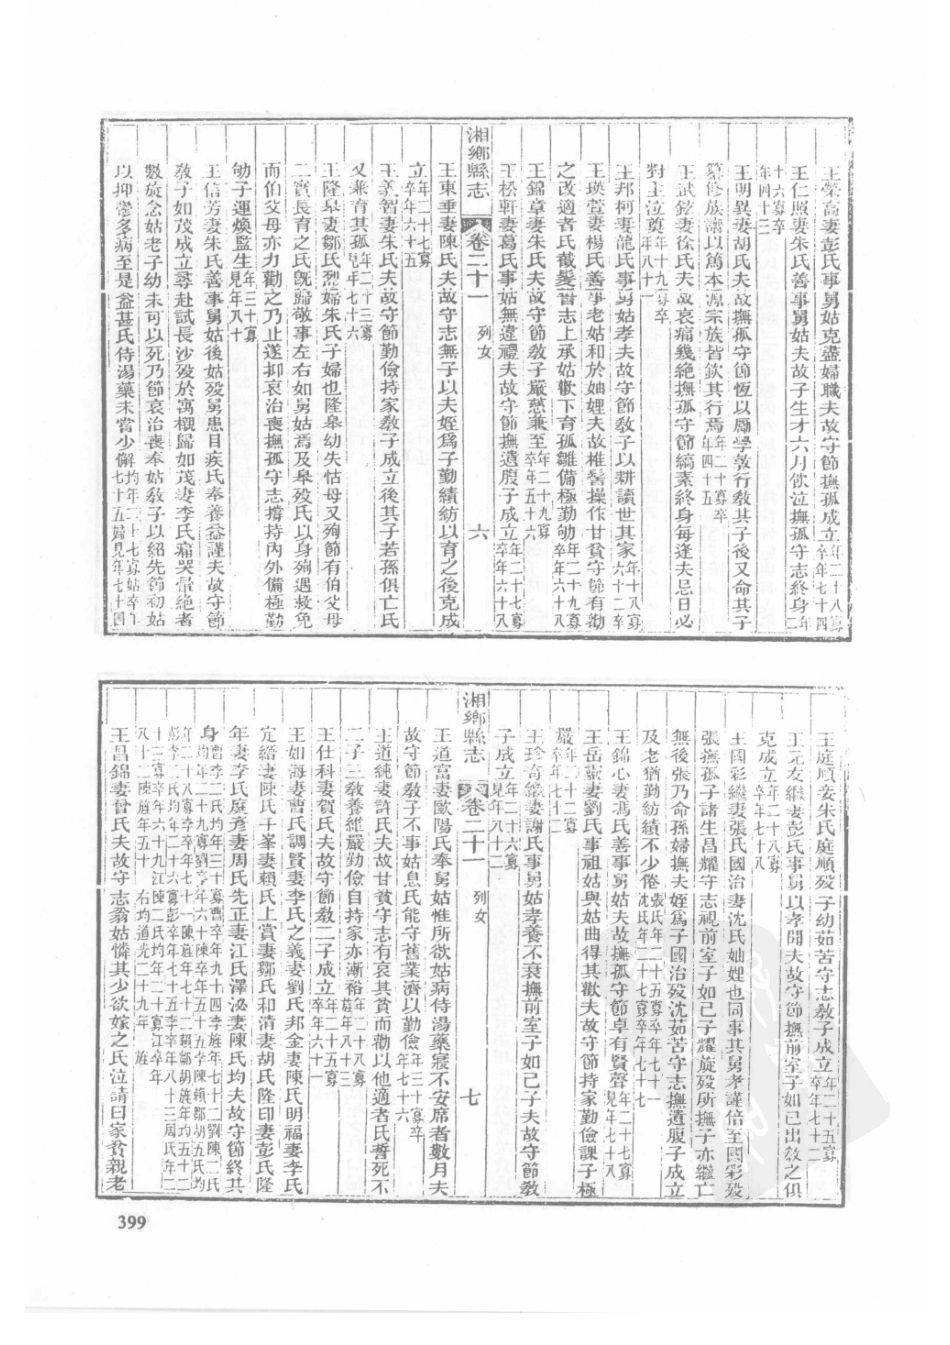 王榮高妻彭氏事舅姑克盡婦職夫故守節撫孤成立年二十八寡卒年七十四
王仁照妻朱氏善事舅姑夫故子生才六月飲泣撫孤守志終身年二十六寡卒年四十三
王明異妻胡氏夫故撫孤守節恆以勵學敦行教其子後又命其子
纂修族譜以篤本源宗族皆欽其行焉年二十寡卒年四十五
王武鉉妻徐氏夫故哀痛幾絶撫孤守節縞素終身每逢夫忌日必
對主泣奠年十九寡卒年八十一
王邦柯妻龍氏事舅姑孝夫故守節教子以耕讀世其家年十八寡卒年六十二
王瑛萱妻楊氏善事老姑和於妯娌夫故椎髻操作甘貧守節有勸
之改適者氏截髮誓志上承姑歡下育孤雛備極勤劬年二十九寡卒年六十八
王錦章妻朱氏夫故守節教子嚴慈兼至年二十九寡卒年五十六
王松軒妻葛氏事姑無違禮夫故守節撫遺腹子成立年二十七寡卒年六十八
湘鄉縣志 卷二十一 列女 六
王東垂妻陳氏夫故守志無子以夫姪爲子勤績紡以育之後克成
立年二十七寡卒年六十五
王義智妻朱氏夫故守節勤儉持家教子成立後其子若孫俱亡氏
又兼育其孤年二十三寡見年七十六
王隆皋妻鄒氏烈婦朱氏子婦也隆皋幼失怙母又殉節有伯父母
二實長育之氏既歸敬事左右如舅姑焉及皋歿氏以身殉遇救免
而伯父母亦力勸之乃止遂抑哀治喪撫孤守志揹持內外備極勤
劬子運煥監生年三十寡見年八十
王信芳妻朱氏善事舅姑後姑歿舅患目疾氏奉養益謹夫故守節
教子如茂成立尋赴試長沙歿於寓櫬歸如茂妻李氏痛哭暈絶者
數旋念姑老子幼未可以死乃節哀治喪奉姑教子以紹先節初姑
以抑鬱多病至是益甚氏侍湯藥未嘗少懈均年二十七寡姑卒年七十五婦見年七十四
王庭順妾朱氏庭順歿子幼茹苦守志教子成立年二十五寡卒年七十二
王元友繼妻彭氏事舅以孝聞夫故守節撫前室子如己出教之俱
克成立年二十八寡卒年七十八
王國彩繼妻張氏國治妻沈氏妯娌也同事其舅孝謹倍至國彩歿
張撫孤子諸生昌耀守志視前室子如己子耀旋歿所撫子亦繼亡
無後張乃命孫婦撫夫姪爲子國治歿沈茹苦守志撫遺腹子成立
及老猶勤紡績不少倦張氏年二十五寡卒年七十一沈氏年二十七寡卒年七十七
王錦心妻馮氏善事舅姑夫故撫孤守節卓有賢聲年二十七寡見年七十八
王岳靈妻劉氏事祖姑與姑曲得其歡夫故守節持家勤儉課子極
嚴年二十二寡卒年七十二
王珍奇繼妻謝氏事舅姑孝養不衰撫前室子如己子夫故守節教
子成立年二十六寡見年八十二
湘鄉縣志 卷二十一 列女 七
王道富妻歐陽氏奉舅姑惟所欲姑病侍湯藥寢不安席者數月夫
故守節教子不事姑息氏能守舊業濟以勤儉年三十寡卒年七十六
王道純妻許氏夫故甘貧守志有哀其貧而勸以他適者氏誓死不
二子三教養維嚴勤儉自持家亦漸裕年二十八寡旌年八十三
王仕科妻賀氏夫故守節教二子成立年二十五寡卒年六十一
王如海妻曹氏調賢妻李氏之義妻劉氏邦金妻陳氏明福妻李氏
定縉妻陳氏千峯妻賴氏上賞妻鄒氏和清妻胡氏隆印妻彭氏隆
年妻李氏庭彥妻周氏先正妻江氏澤泌妻陳氏均夫故守節終其
身
王昌錦妻曾氏夫故守志翁姑憐其少欲嫁之氏泣請曰家貧親老
399